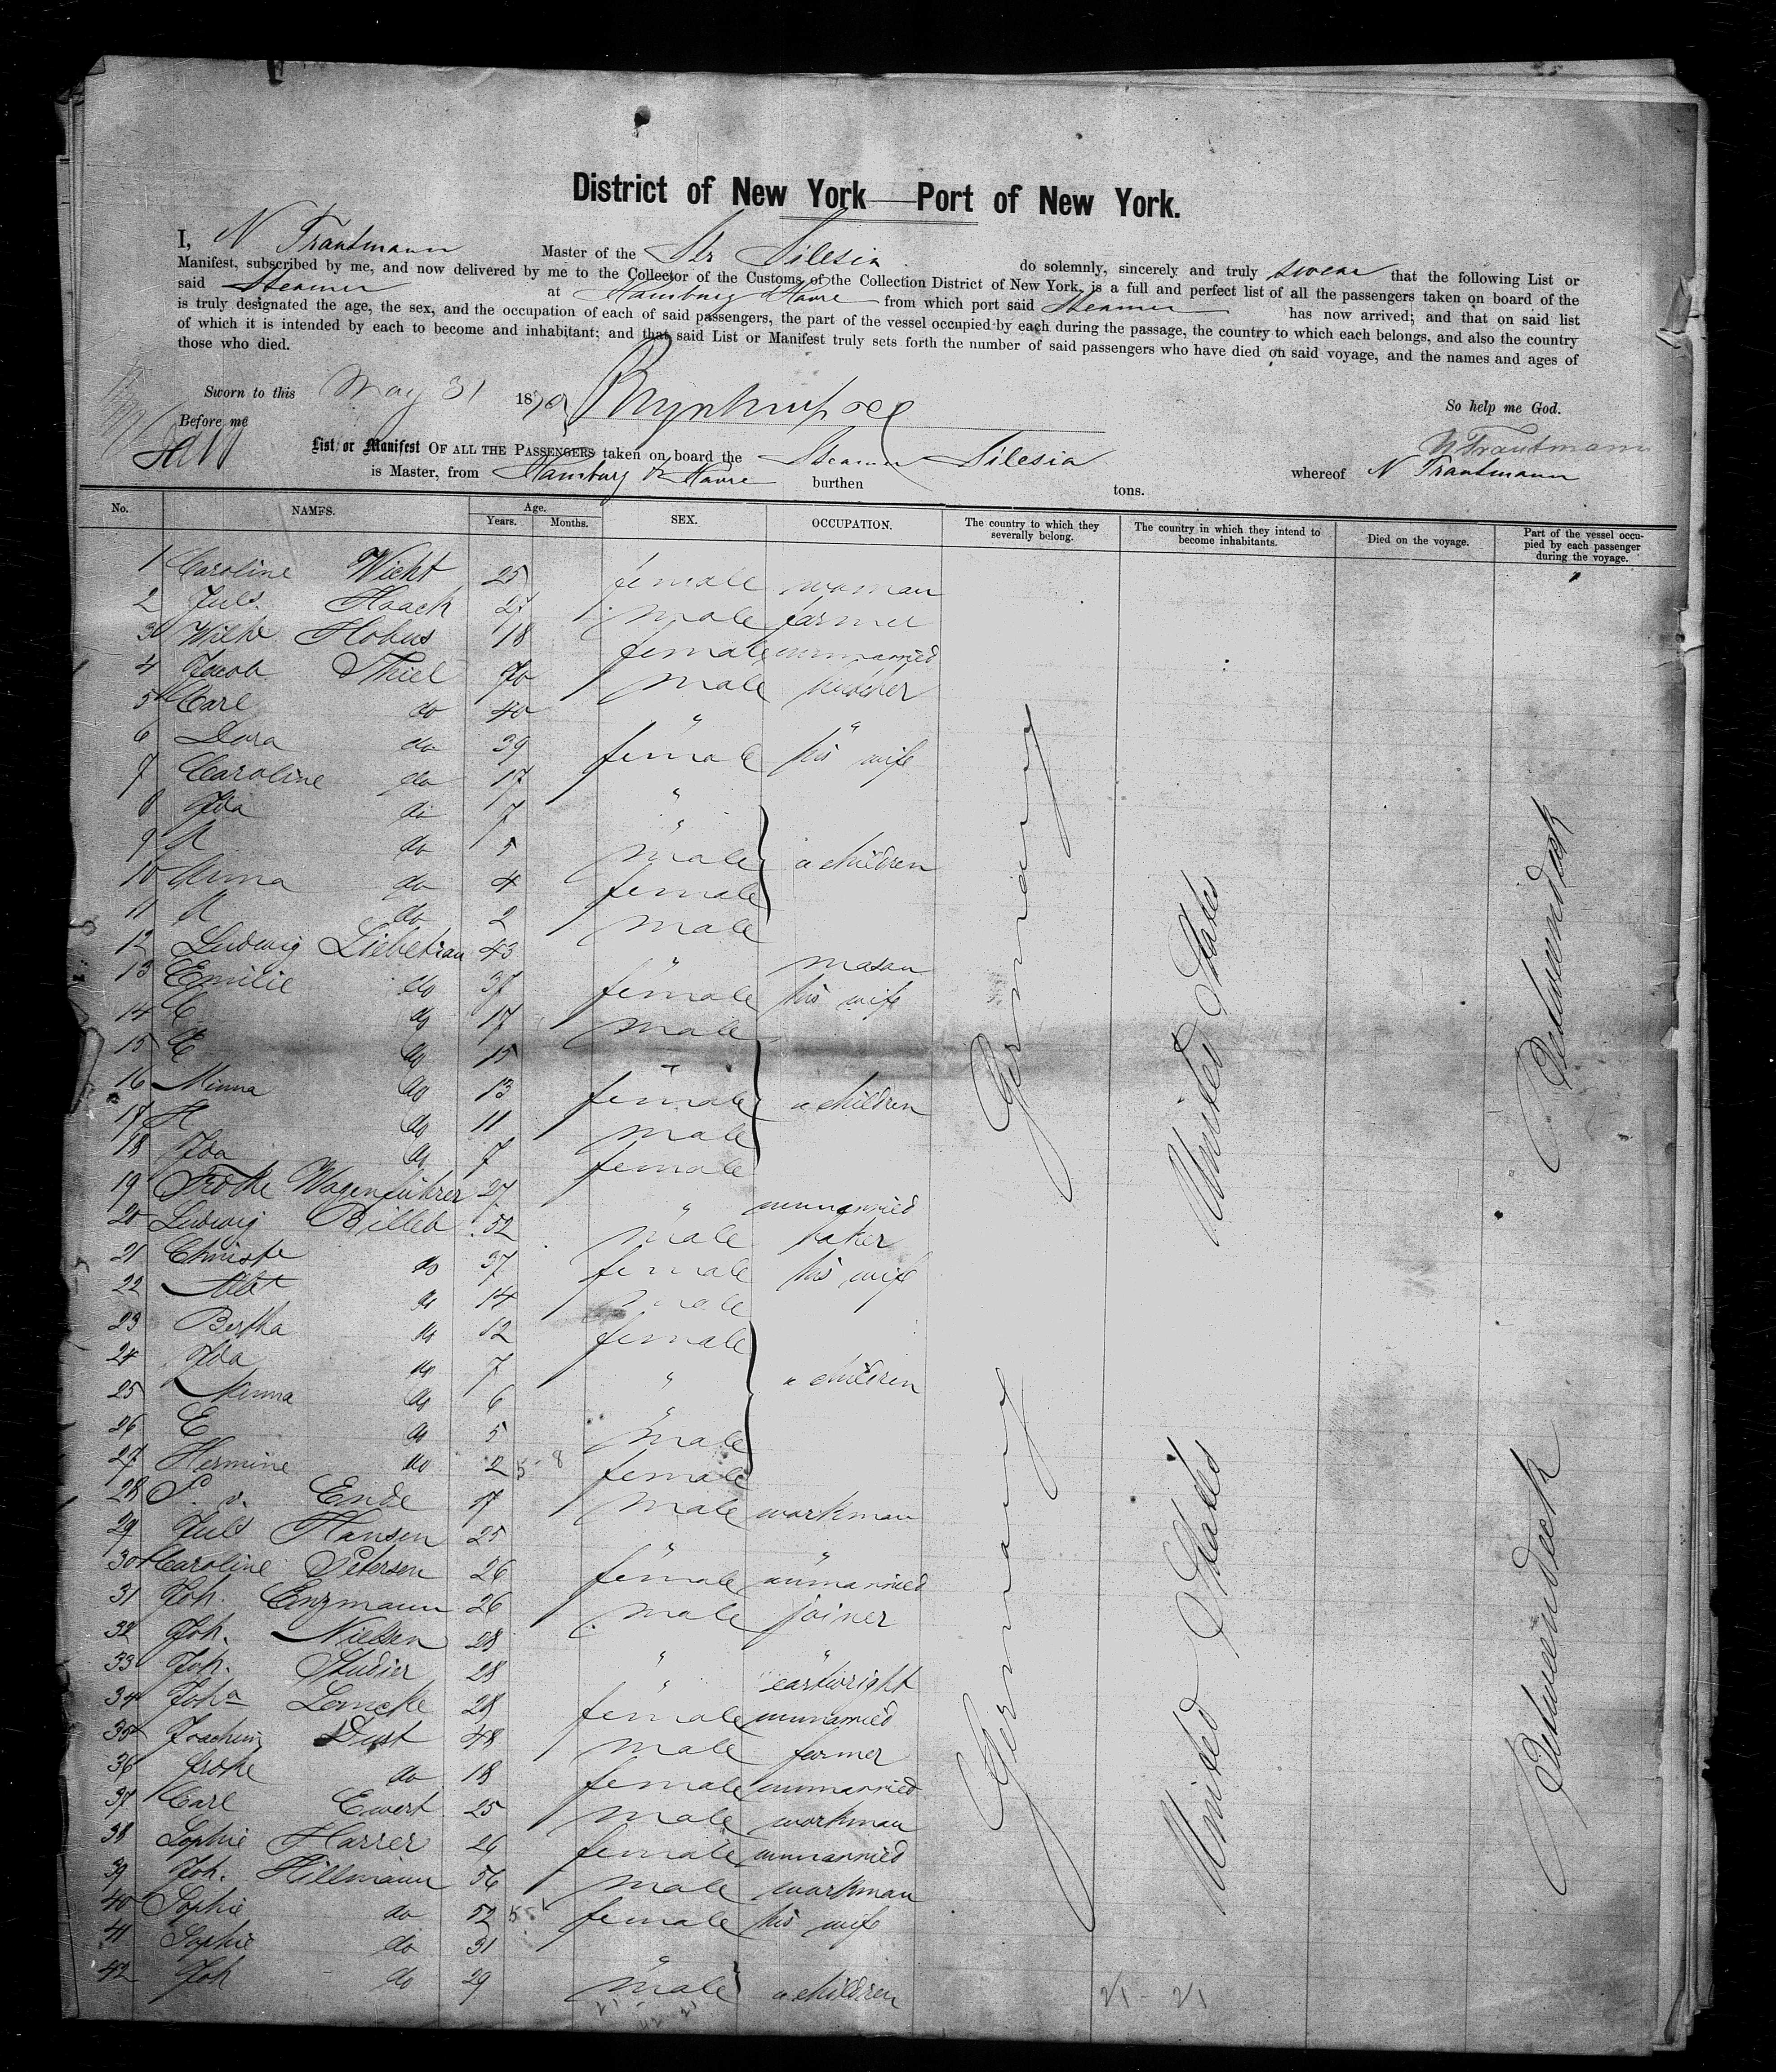 District of New York—Port of New York.
I, N Trautmann Master of the Str Silesia do solemnly, sincerely and truly swear that the following List or
Manifest, subscribed by me, and now delivered by me to the Collector of the Customs of the Collection District of New York, is a full and perfect list of all the passengers taken on board of the
said Steamer at Hamburg Havre from which port said Steamer has now arrived; and that on said list
is truly designated the age, the sex, and the occupation of each of said passengers, the part of the vessel occupied by each during the passage, the country to which each belongs, and also the country
of which it is intended by each to become and inhabitant; and that said List or Manifest truly sets forth the number of said passengers who have died on said voyage, and the names and ages of
those who died.
Sworn to this May 31 1879 So help me God.
Before me N Trautmann
List or Manifest OF ALL THE PASSENGERS taken on board the Steamer Silesia whereof N Trautmann
is Master, from Hamburg & Havre burthen tons.
No. NAMES. Age. Years. Months. SEX. OCCUPATION. The country to which they severally belong. The country in which they intend to become inhabitants. Died on the voyage. Part of the vessel occupied by each passenger during the voyage.
1 Caroline Wicht 25 female woman
2 Juls. Haack 27 male farmer
3 Wilhe Hobus 18 female unmarried
4 Jacob Thiel 70 male butcher
5 Carl do 40 " "
6 Dora do 39 female his wife
7 Caroline do 17 "
8 Ida do 7 "
9 A do 5 male " children
10 Anna do 4 female
11 A do 2 male
12 Ludwig Liebetrau 43 " mason
13 Emilie do 37 female his wife
14 C do 17 male
15 E do 15 "
16 Minna do 13 female " children
17 H do 11 male
18 Ida do 7 female
19 Frdke Wagenführer 27 " unmarried
20 Ludwig Billeb 52 male baker
21 Christe do 37 female his wife
22 Albt do 14 male
23 Bertha do 12 female
24 Ida do 7 " " children
25 Minna do 6 "
26 E do 5 male
27 Hermine do 2 female
28 P. v. Ende 17 male workman
29 Juls Hansen 25 " "
30 Caroline Petersen 26 female unmarried
31 Joh. Enzmann 26 male joiner
32 Joh. Nielsen 28 " "
33 Joh. Studier 28 " cartwright
34 Joha Lemcke 28 female unmarried
35 Joachim Dust 48 male farmer
36 Frdke do 18 female unmarried
37 Carl Ewert 25 male workman
38 Sophie Harrer 26 female unmarried
39 Joh. Hillmann 56 male workman
40 Sophie do 52 female his wife
41 Sophie do 31 "
42 Joh do 29 male " children
Germany
United States
Betweendeck
Germany
United States
Betweendeck
21 - 21